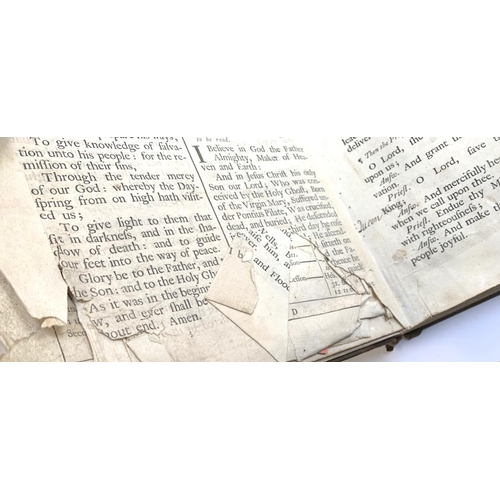 To give knowledge of salva-
tion unto his people: for the re-
mission of their sins,
Through the tender mercy
of our God: whereby the Day-
spring from on high hath visit-
ed us;
To give light to them that
sit in darkness, and in the sha-
dow of death: and to guide
our feet into the way of peace.
Glory be to the Father, and
the Son: and to the Holy Ghost
As it was in the beginn
and ever shall be
out end. Amen.
to be read.
I Believe in God the Father
Almighty, Maker of Hea-
ven and Earth:
And in Jesus Christ his only
Son our Lord, Who was con-
ceived by the Holy Ghost, Born
of the Virgin Mary, Suffered un-
der Pontius Pilate, Was crucified,
dead, and buried; He descended
third day he rose
He ascend
fitteth on
the Fa
and Flood
D
deliver
Then the Pri
O Lord,
upon us;
Answ. And grant
Priest. O Lord, save
King;
Answ. And mercifully h
when we call upon thee
Priest. Endue thy
with righteousness;
Answ. And make
people joyful.